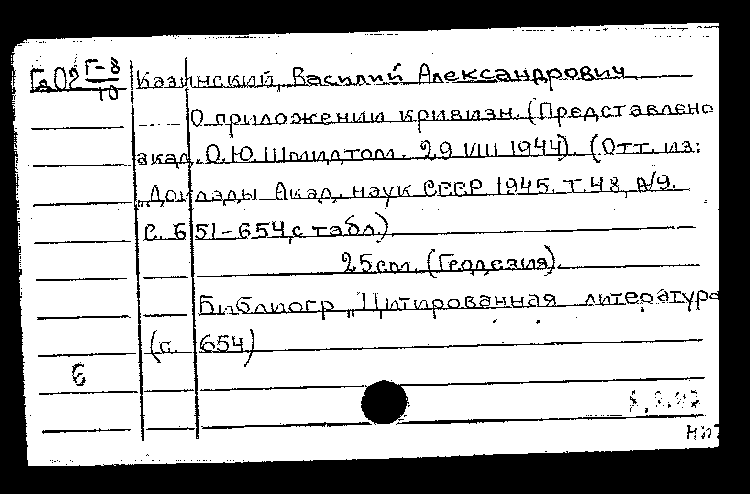 Га02 Г-8/10 Казинский, Василий Александрович
О приложении кривизн. (Представлено
акад. О.Ю. Шмидтом. 29 VIII 1944). (Отт. из:
"Доклады Акад. наук СССР 1945. Т. 48, №9.
С. 651-654, с табл.)
25 см. (Геодезия).
Библиогр. "Цитированная литература
(с. 654)
6